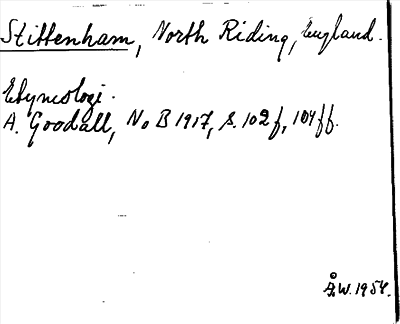 Stittenham, North Riding, England.
Etymologi.
A. Goodall, No B 1917, s. 102 f, 104 ff.
Å.W. 1954.